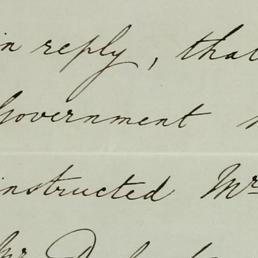 in reply, that
Government
instructed Mr
Mr